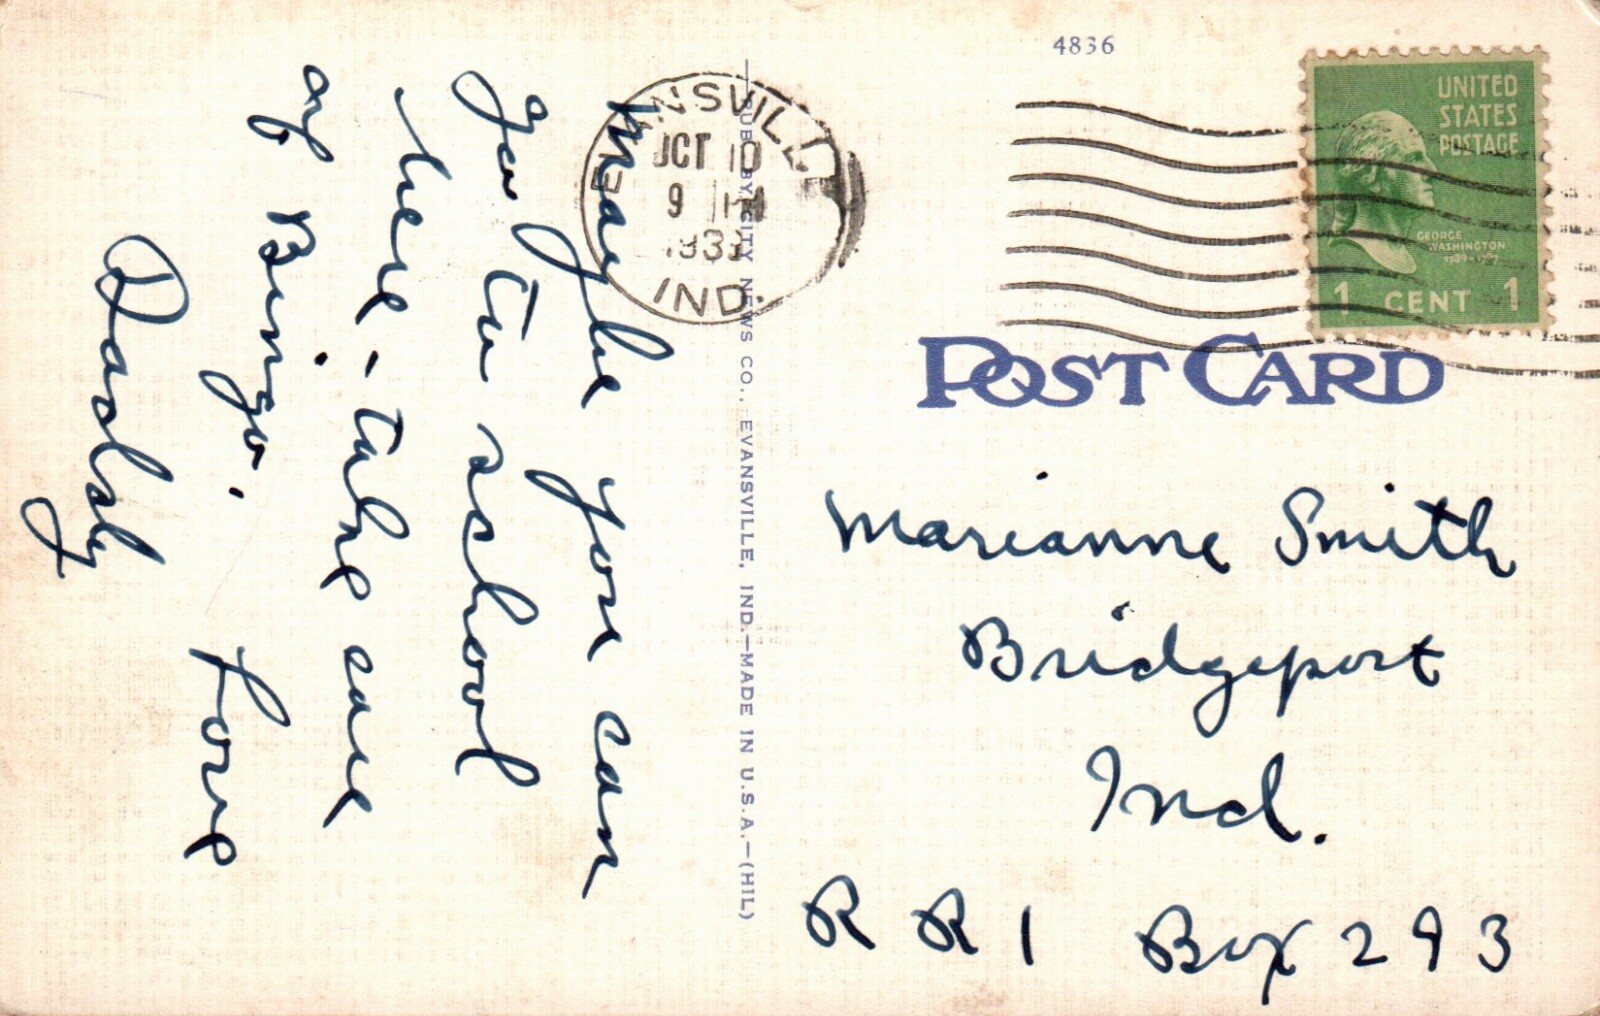 4836
UNITED
STATES
POSTAGE
GEORGE
WASHINGTON
1789-1797
1 CENT 1
EVANSVILLE
OCT 10
9 PM
193
IND.
POST CARD
PUB. BY CITY NEWS CO., EVANSVILLE, IND.—MADE IN U.S.A.—(HIL)
Maybe you can
go to school
here - take care
of Bingo. Love
Daddy
Marianne Smith
Bridgeport
Ind.
R R 1 Box 293